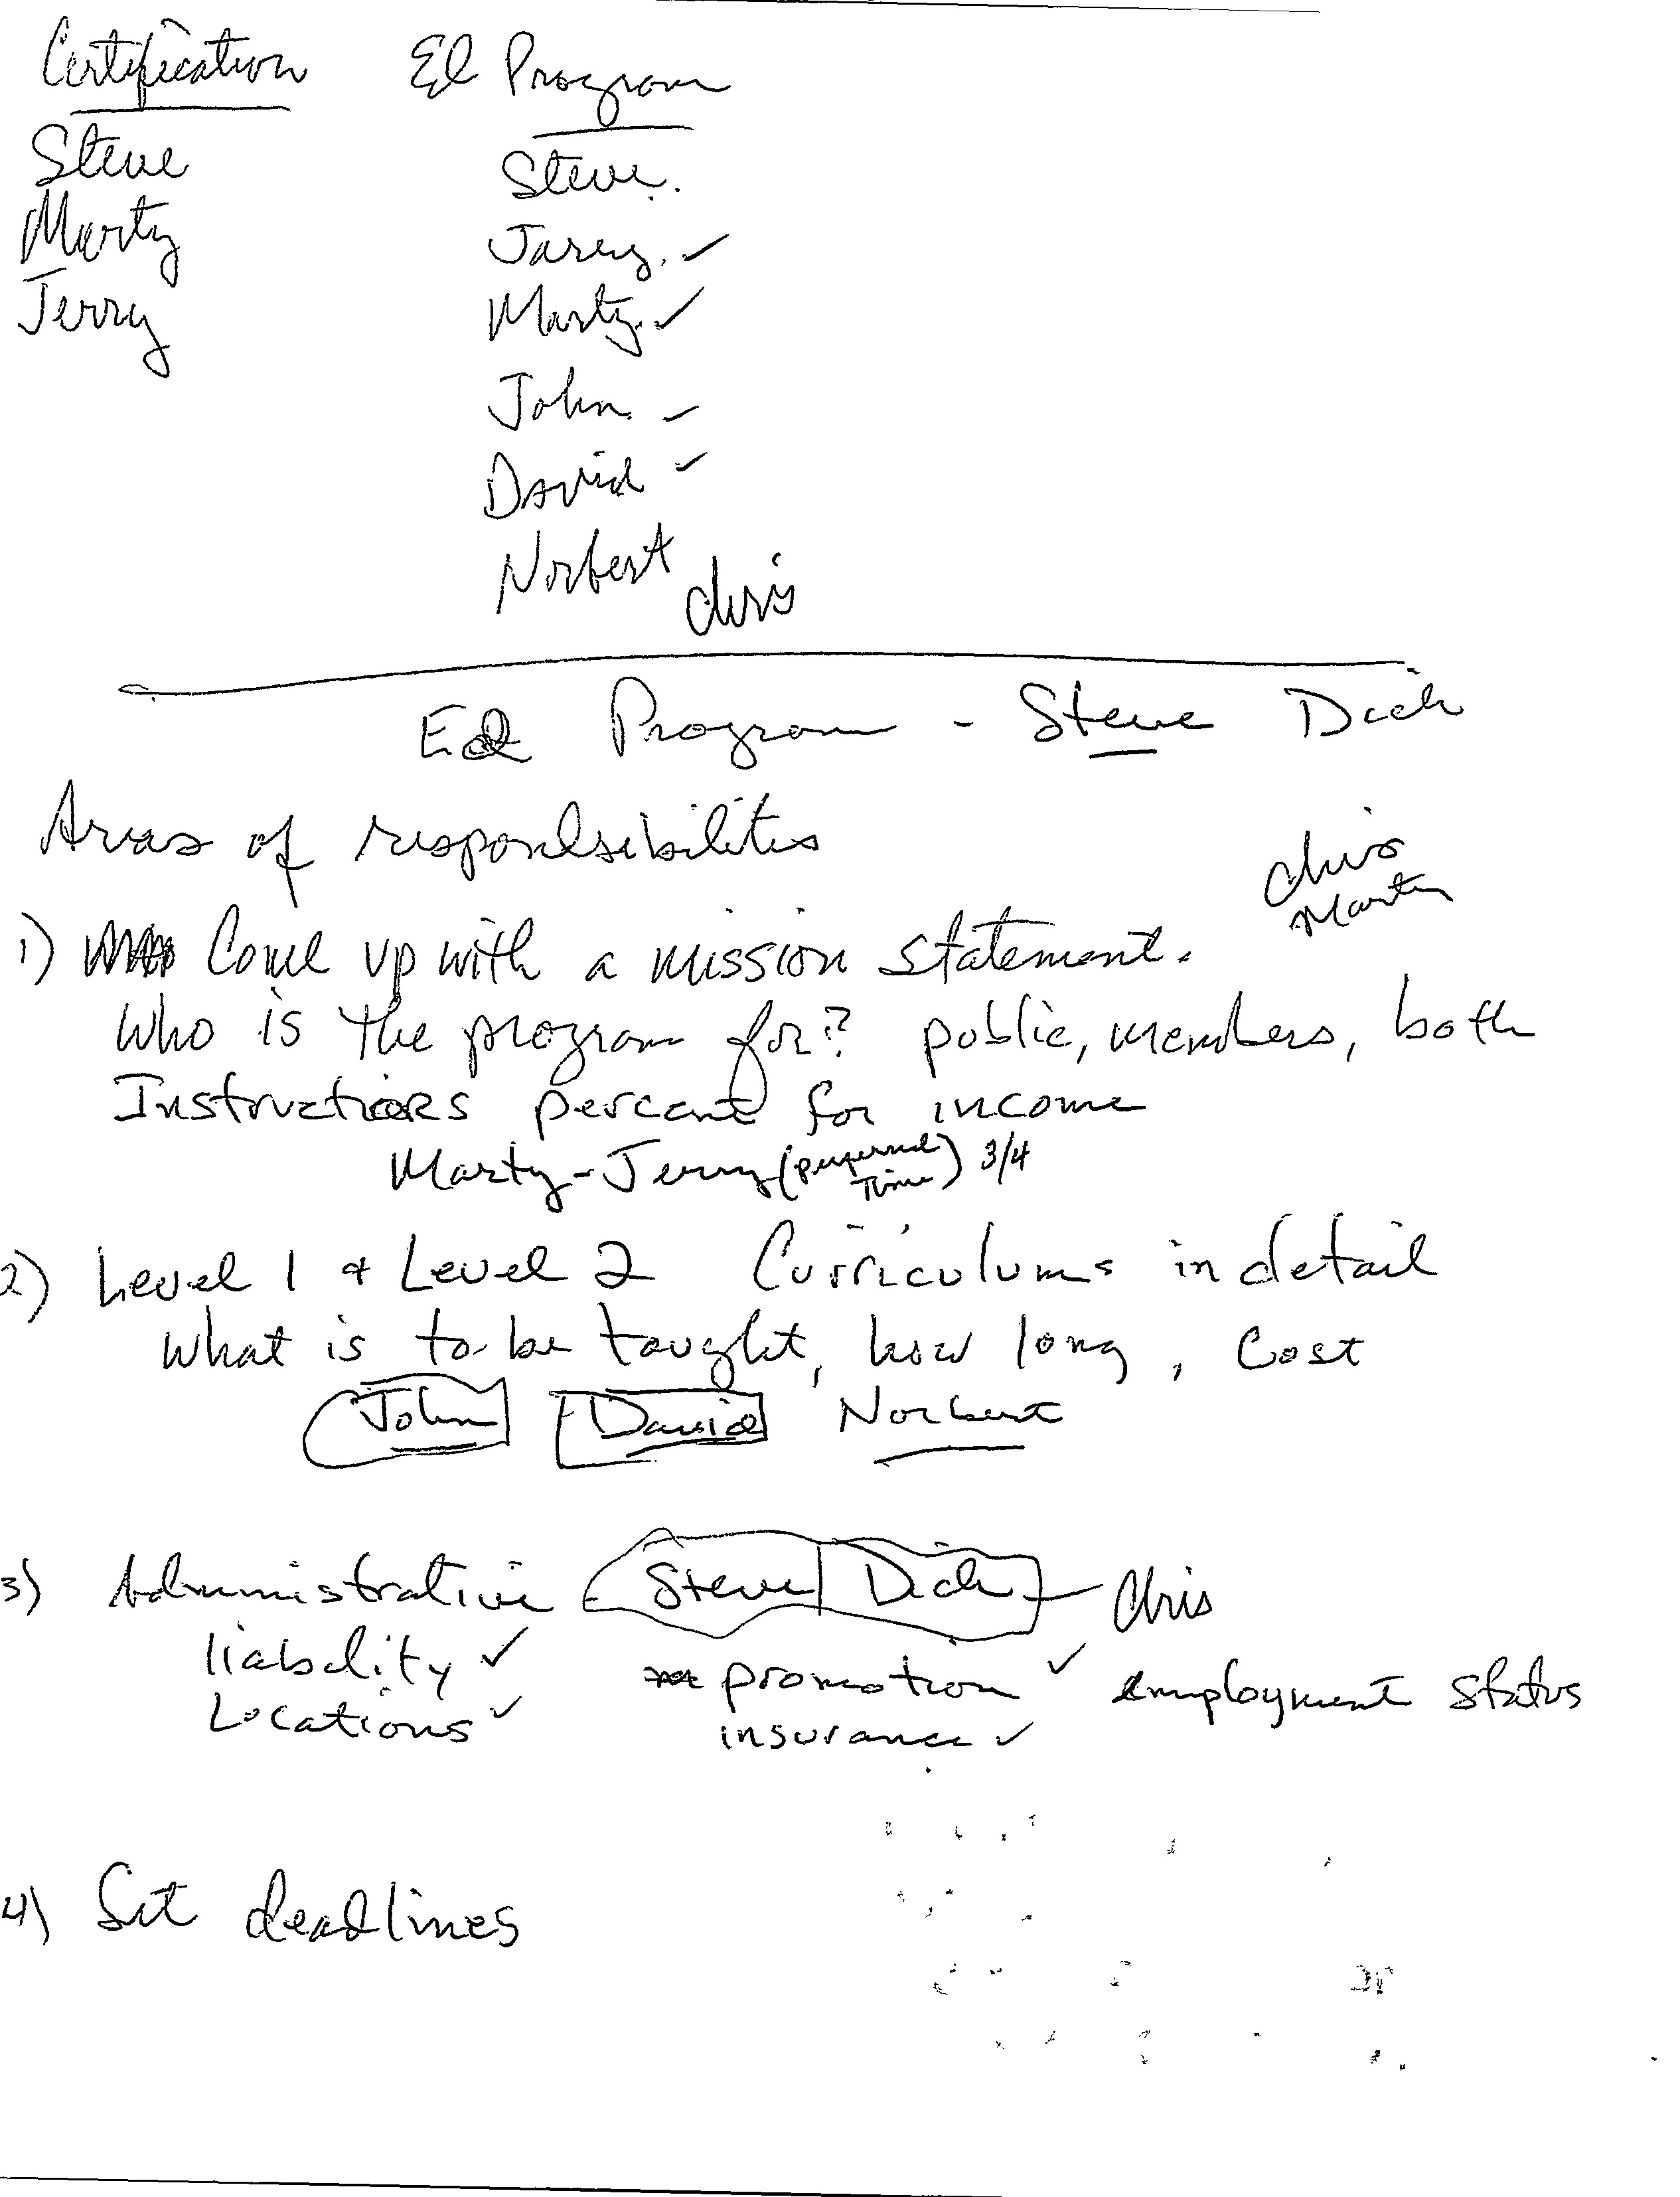 Certification    Ed Program
Steve    Steve.
Marty    Jerry. ✓
Jerry    Marty. ✓
John. ✓
David ✓
Norbert
chris
Ed Program - Steve Dick
Areas of responsibilities
chris
Marty
1) Come up with a mission statement.
Who is the program for? public, members, both
Instructors percent for income
Marty - Jerry ( Time) 3/4
2) Level 1 + Level 2 Curriculums in detail
What is to be taught, how long, Cost
John David Norbert
3) Administrative Steve Dick - Chris
liabality ✓ promotion ✓ employment status
Locations ✓ insurance ✓
4) Set deadlines